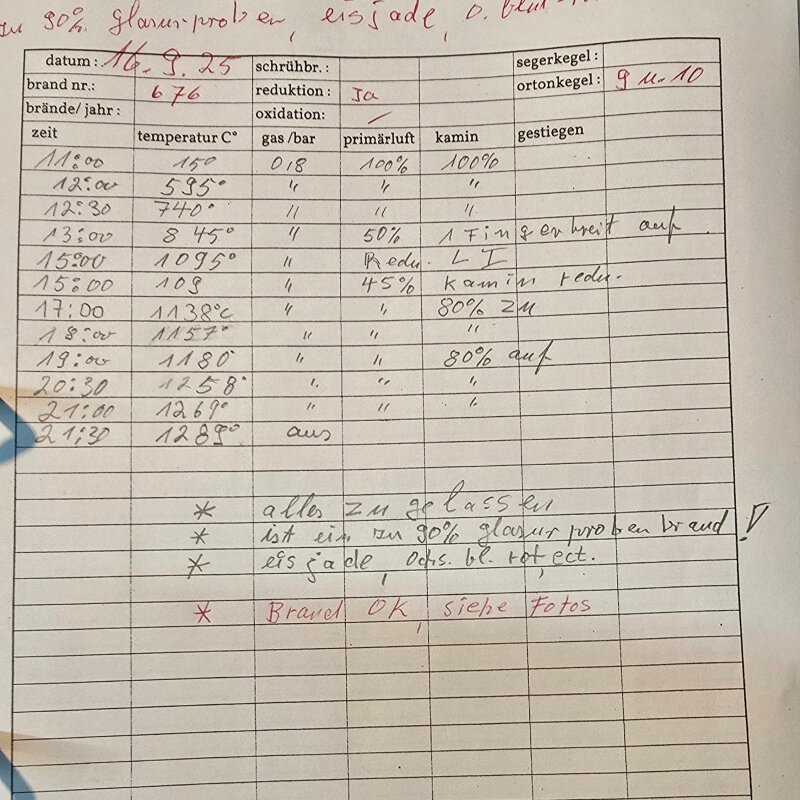 zu 90% glasurproben, eisjade, o. blut
datum : 16.9.25 schrühbr. : segerkegel :
brand nr.: 676 reduktion : Ja ortonkegel : 9 u. 10
brände/ jahr : oxidation: /
zeit temperatur C° gas /bar primärluft kamin gestiegen
11:00 150 0,8 100% 100%
12:00 595° " " "
12:30 740° " " "
13:00 845° " 50% 1 Fingerbreit auf
15:00 1095° " Redu. LI
15:00 109 " 45% kamin redu.
17:00 1138°c " " 80% zu
18:00 1157° " " "
19:00 1180° " " 80% auf
20:30 1258° " " "
21:00 1269° " " "
21:30 1289° aus
* alles zu gelassen
* ist ein zu 90% glasurprobenbrand !
* eisjade, ochs. bl. rot, ect.
* Brand OK, siehe Fotos